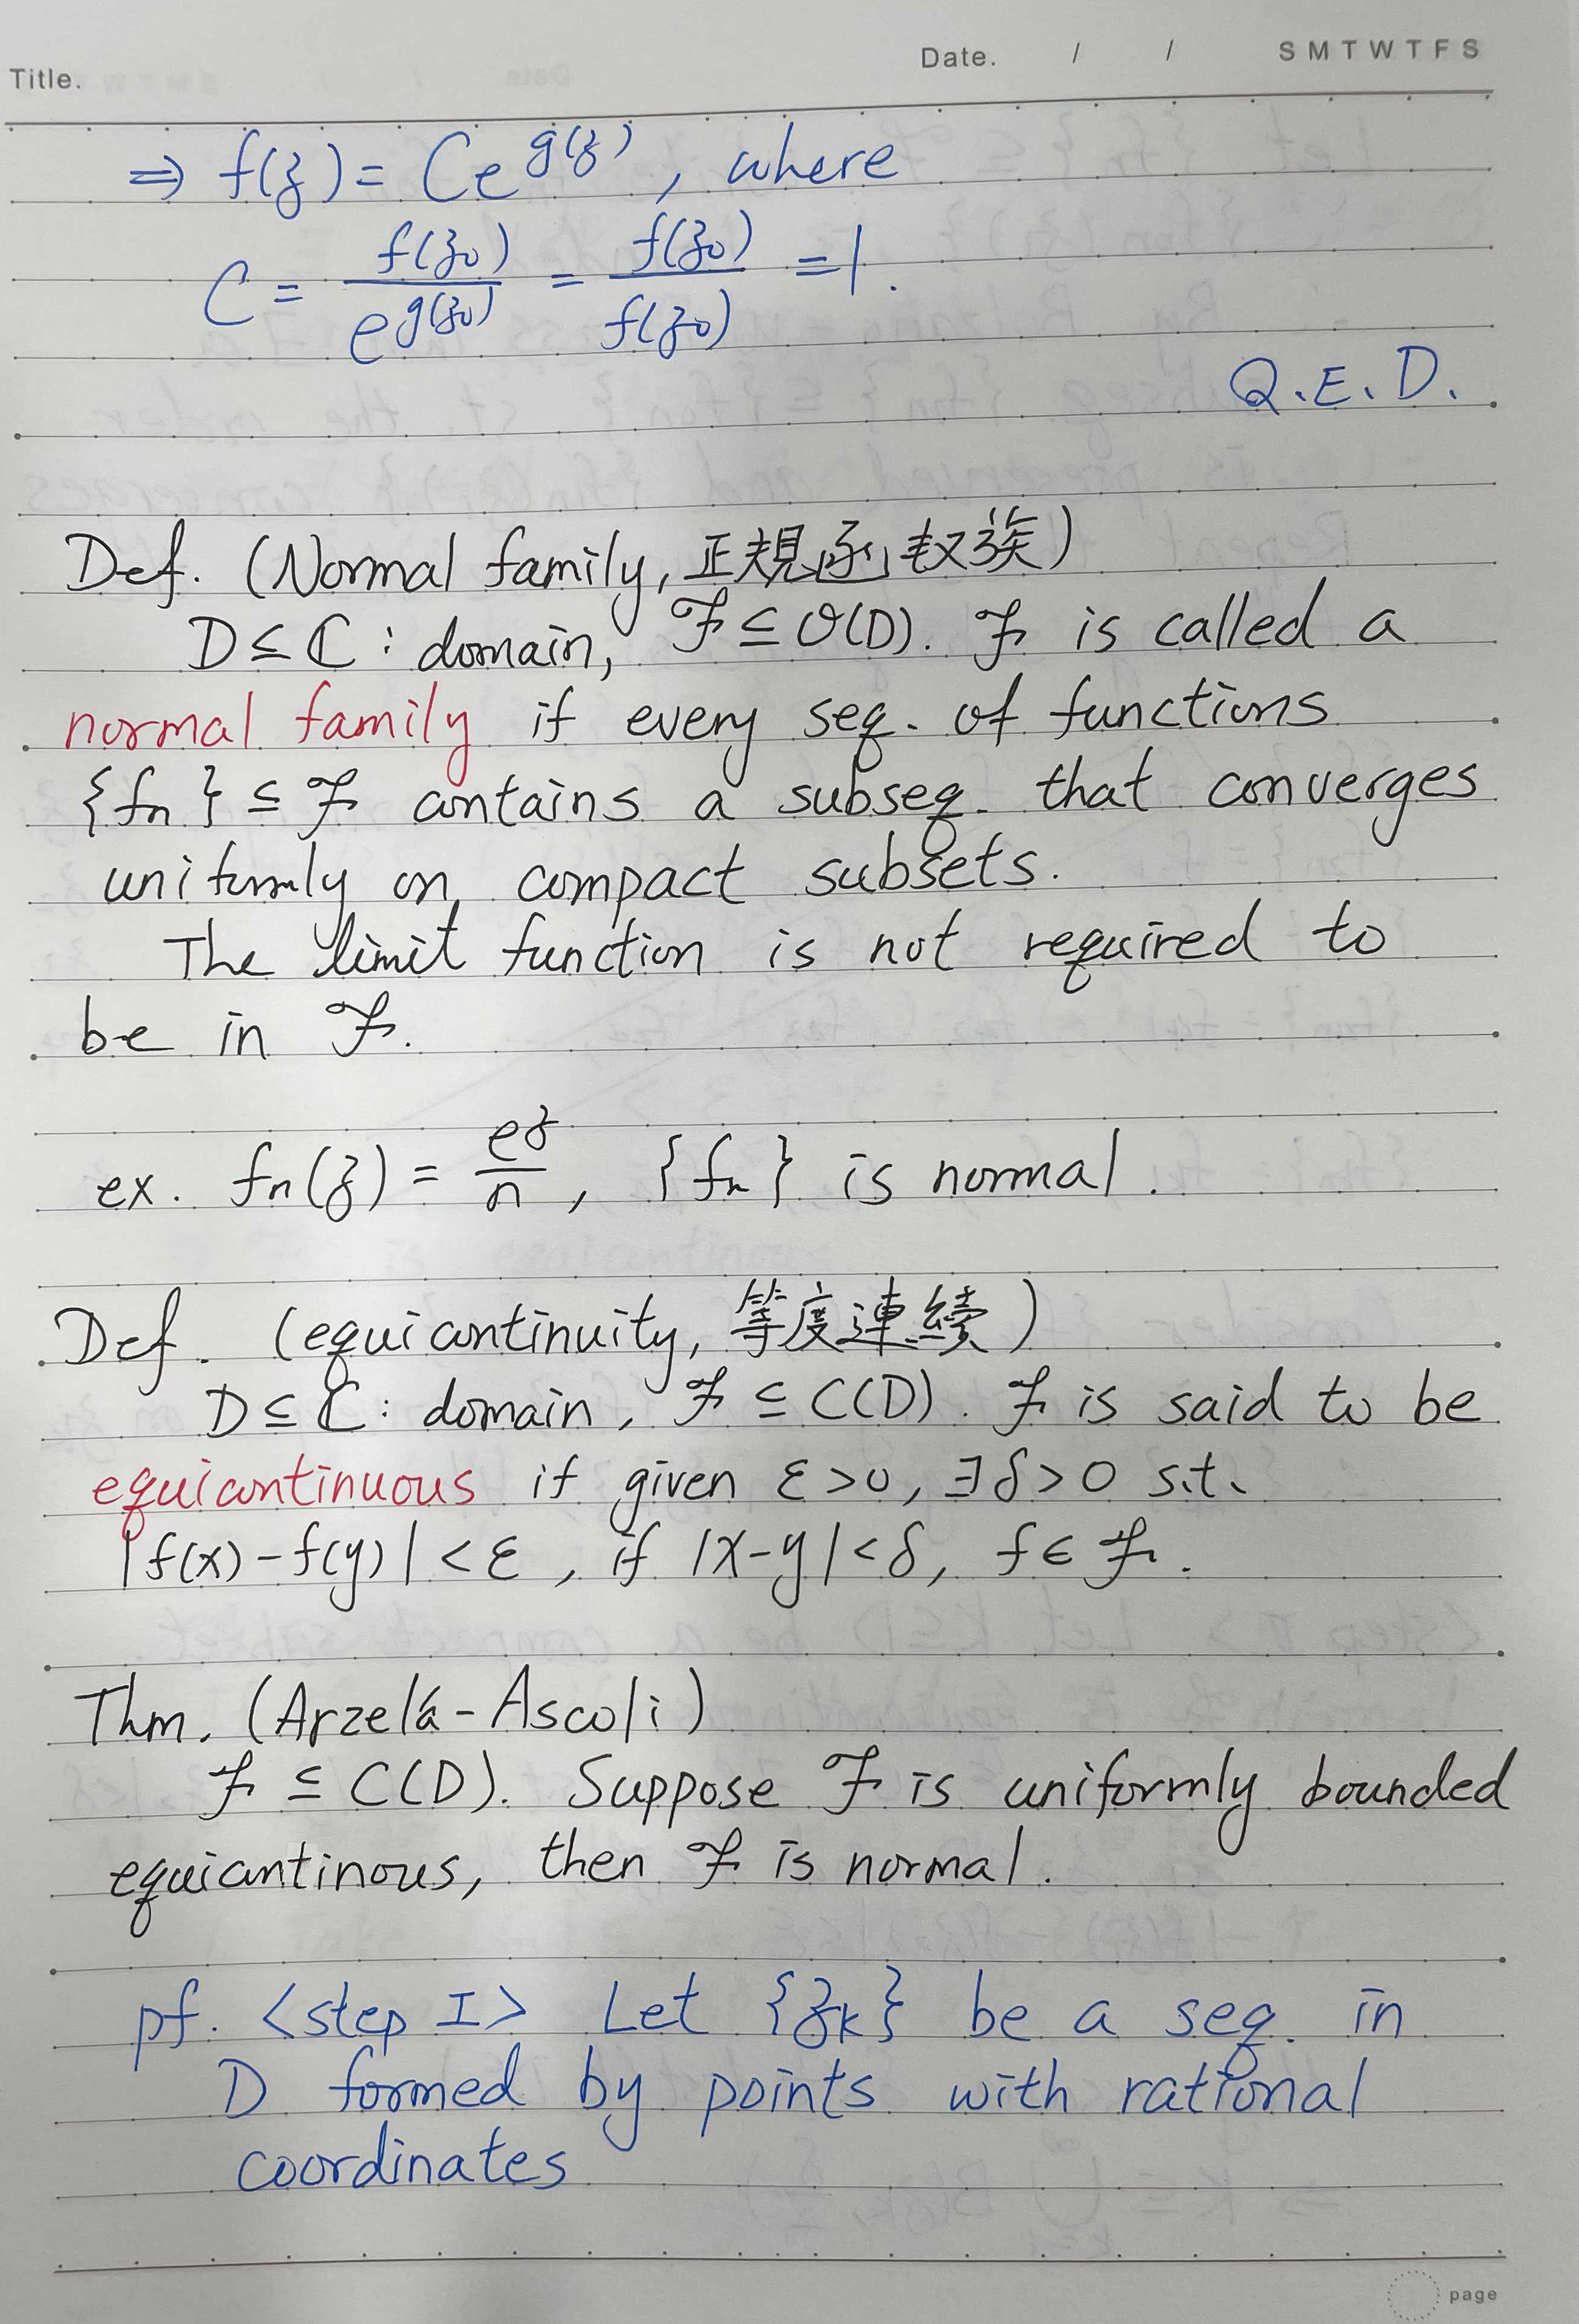 Title.
Date. / / S M T W T F S
⇒ f(z) = Ce^{g(z)}, where
C = f(z₀)/e^{g(z₀)} = f(z₀)/f(z₀) = 1.
Q.E.D.
Def. (Normal family, 正規函数族)
D ⊆ ℂ : domain, ℱ ⊆ 𝒪(D). ℱ is called a
normal family if every seq. of functions
{fn} ⊆ ℱ contains a subseq. that converges
uniformly on compact subsets.
The limit function is not required to
be in ℱ.
ex. fn(z) = e^z/n, {fn} is normal.
Def. (equicontinuity, 等度連續)
D ⊆ ℂ : domain, ℱ ⊆ C(D). ℱ is said to be
equicontinuous if given ε > 0, ∃δ > 0 s.t.
|f(x) - f(y)| < ε, if |x-y| < δ, f ∈ ℱ.
Thm. (Arzelá-Ascoli)
ℱ ⊆ C(D). Suppose ℱ is uniformly bounded
equicontinous, then ℱ is normal.
pf. <step I> Let {zk} be a seq. in
D formed by points with rational
coordinates
page